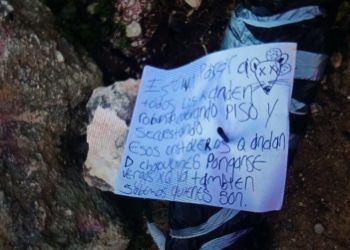 Esto le pasara a
todos los k anden
robando, dando PISO y
secuestrando
Esos culeros q andan
D chapulines Ponganse
vergas xq ya tambien
sabemos quienes son.